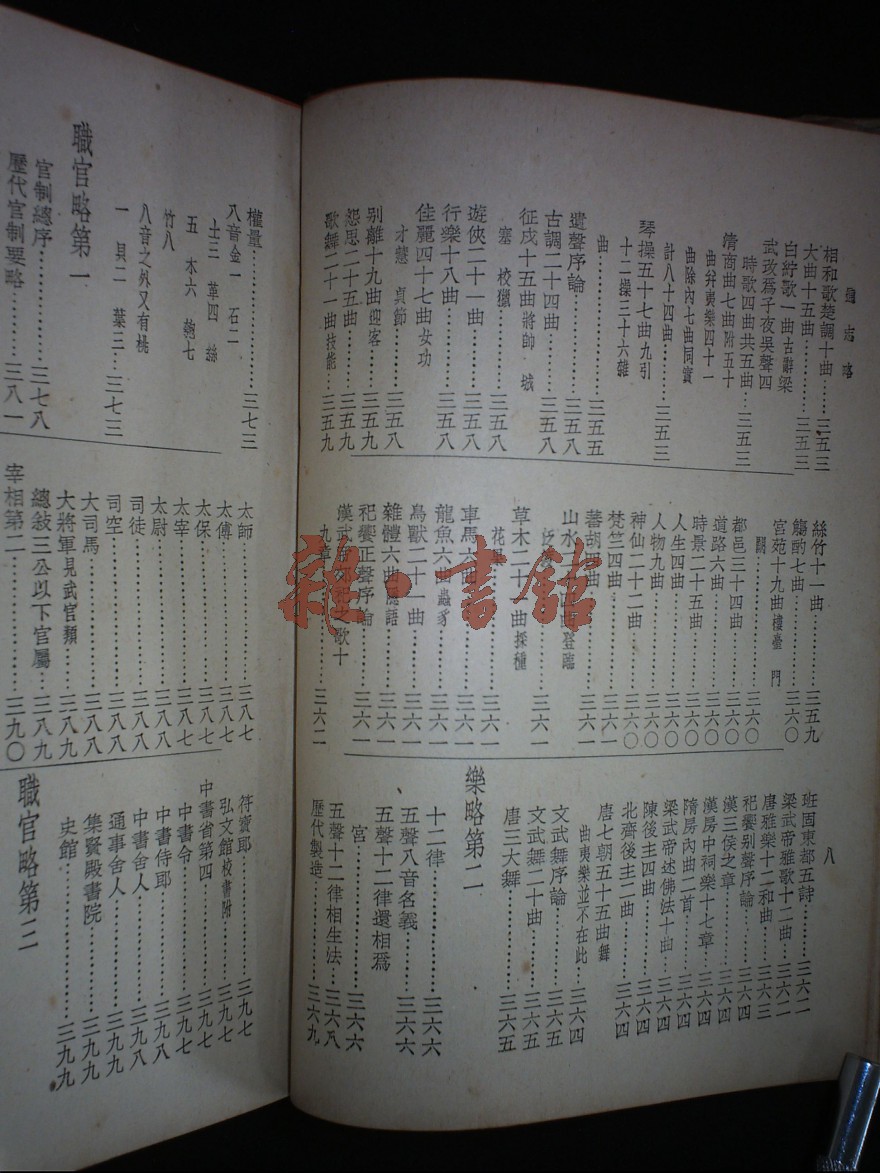 通志略
八
相和歌楚調十曲……三五三
大曲十五曲……三五三
白紵歌一曲古辭梁
武改爲子夜吳聲四
時歌四曲共五曲……三五三
清商曲七曲附五十
曲并夷樂四十一
曲除內七曲同實
計八十四曲……三五三
琴操五十七曲九引
十二操三十六雜
曲……三五五
遺聲序論……三五八
古調二十四曲……三五八
征戍十五曲將帥 城
塞 校獵……三五八
遊俠二十一曲……三五八
行樂十八曲……三五八
佳麗四十七曲女功
才慧 貞節……三五八
别離十九曲迎客……三五九
怨思二十五曲……三五九
歌舞二十一曲技能……三五九
絲竹十一曲……三五九
觴酌七曲……三六〇
宮苑十九曲樓臺 門
闕……三六〇
都邑三十四曲……三六〇
道路六曲……三六〇
時景二十五曲……三六〇
人生四曲……三六〇
人物九曲……三六〇
神仙二十二曲……三六〇
梵竺四曲……三六一
蕃胡四曲……三六一
山水二十四曲登臨
泛……三六一
草木二十一曲採種
花果……三六一
車馬六曲……三六一
龍魚六曲蟲豸……三六一
鳥獸二十一曲……三六一
雜體六曲隱語……三六一
祀饗正聲序論……三六一
漢武帝郊祀之歌十
九章……三六二
班固東都五詩……三六二
梁武帝雅歌十二曲……三六二
唐雅樂十二和曲……三六三
祀饗别聲序論……三六四
漢三侯之章……三六四
漢房中祠樂十七章……三六四
隋房內曲二首……三六四
梁武帝述佛法十曲……三六四
陳後主四曲……三六四
北齊後主二曲……三六四
唐七朝五十五曲舞
曲夷樂並不在此……三六四
文武舞序論……三六五
文武舞二十曲……三六五
唐三大舞……三六五
樂略第二
十二律……三六六
五聲八音名義……三六六
五聲十二律還相爲
宮……三六六
五聲十二律相生法……三六八
歷代製造……三六九
權量……三七三
八音金一 石二
土三 革四 絲
五 木六 匏七
竹八
八音之外又有桃
一 貝二 葉三……三七三
職官略第一
官制總序……三七八
歷代官制要略……三八一
太師……三八七
太傅……三八七
太保……三八七
太宰……三八七
太尉……三八八
司徒……三八八
司空……三八八
大司馬……三八八
大將軍見武官類……三八九
總敍三公以下官屬……三八九
宰相第二……三九〇
符寶郎……三九七
弘文館校書附……三九七
中書省第四……三九七
中書令……三九七
中書侍郎……三九八
中書舍人……三九八
通事舍人……三九九
集賢殿書院……三九九
史館……三九九
職官略第三
雜·書館